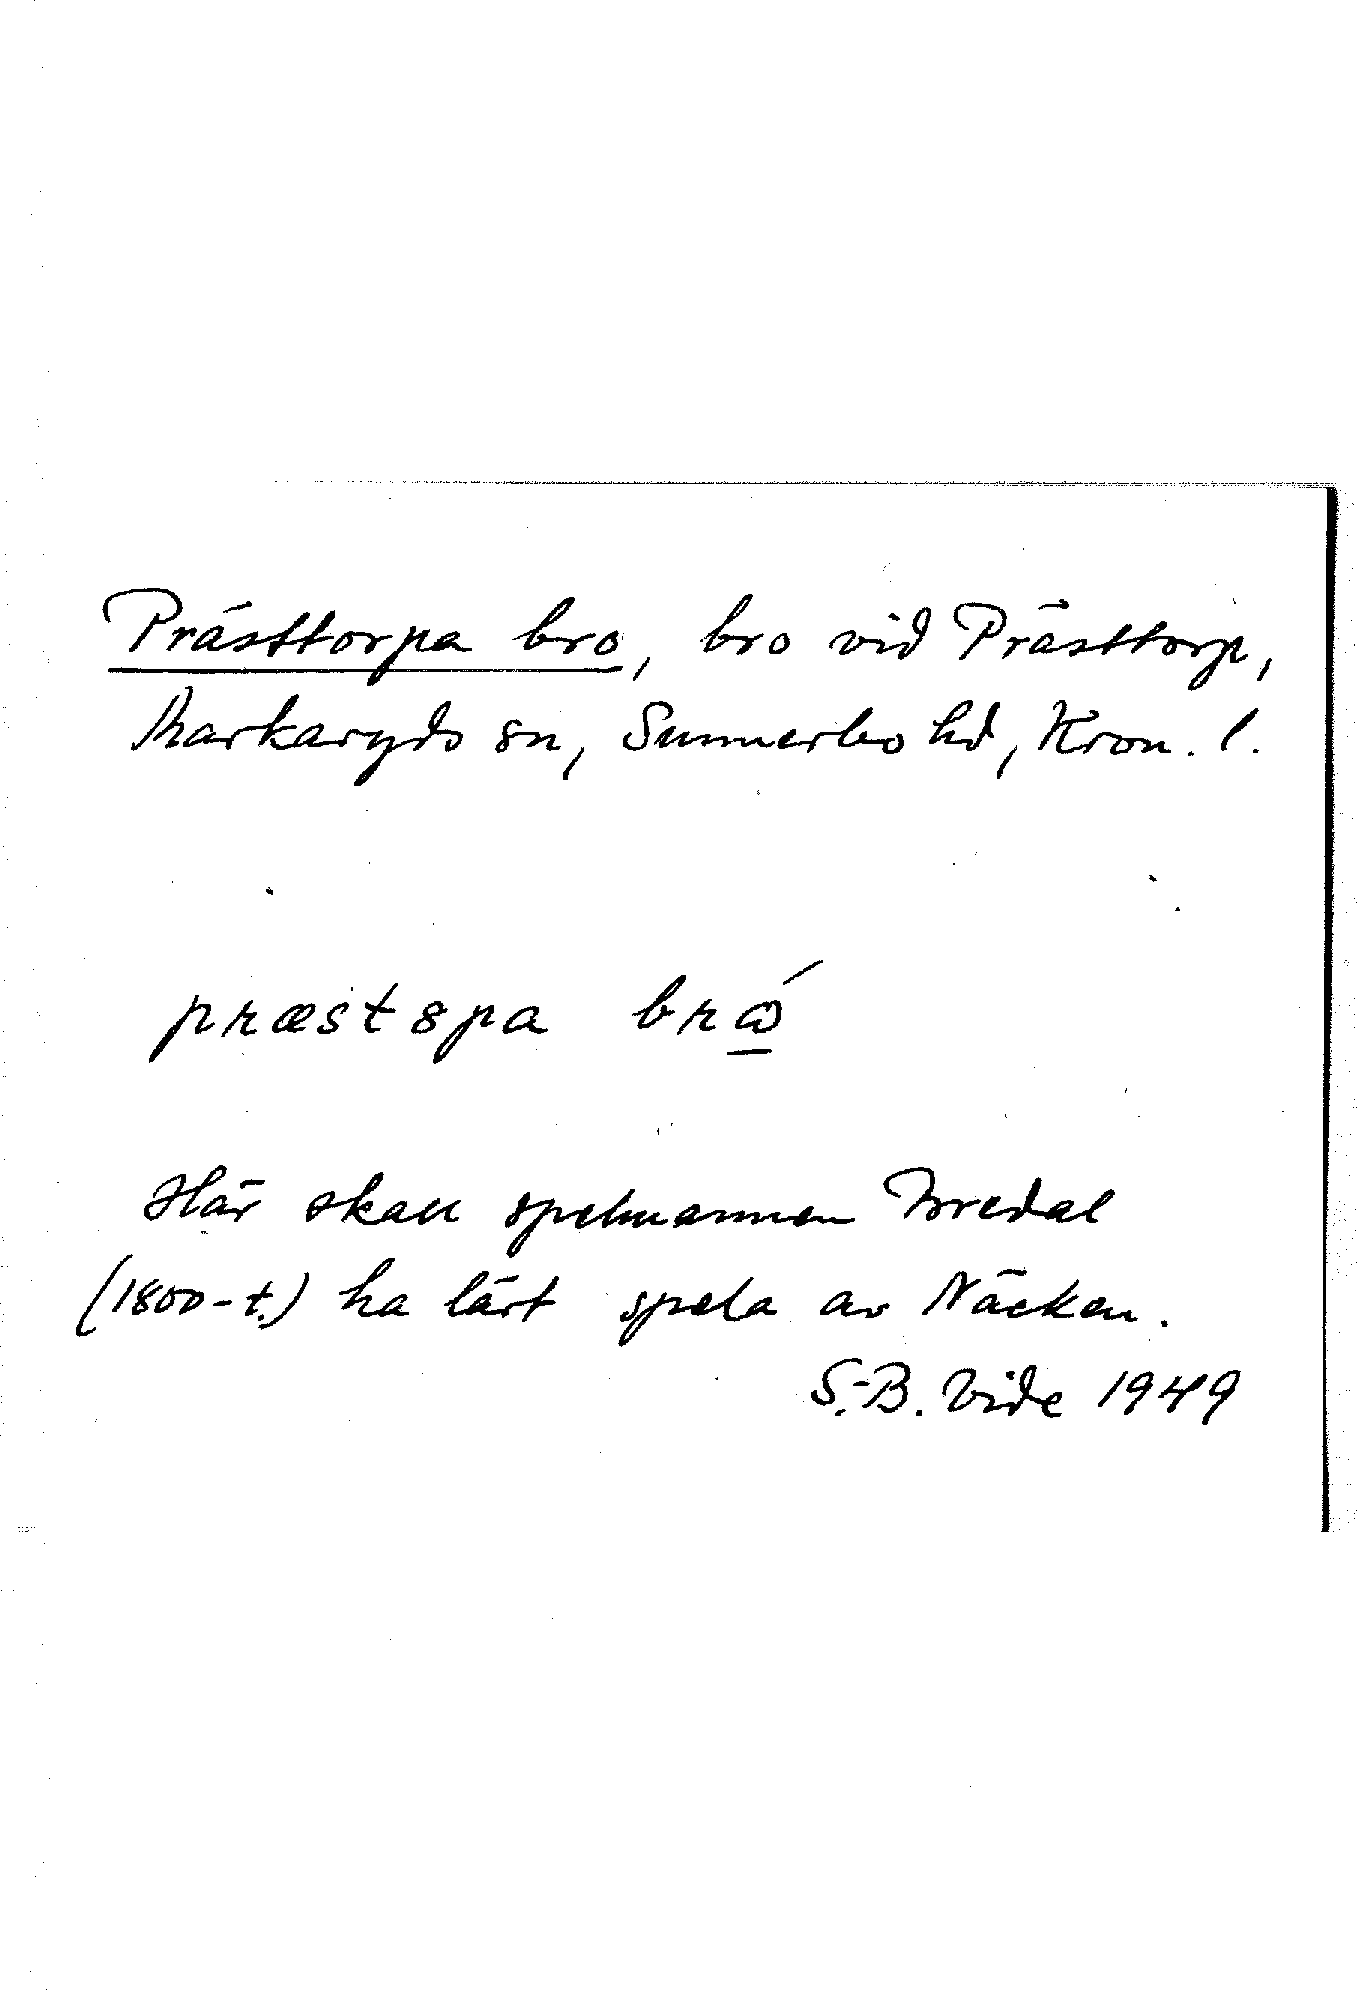 Prästtorpa bro, bro vid Prästtorp,
Markaryds sn, Sunnerbo hd, Kron. l.
præstspa brǻ
Här skall spelmannen Bredal
(1800-t.) ha lärt spela av Näcken.
S.-B. Vide 1949